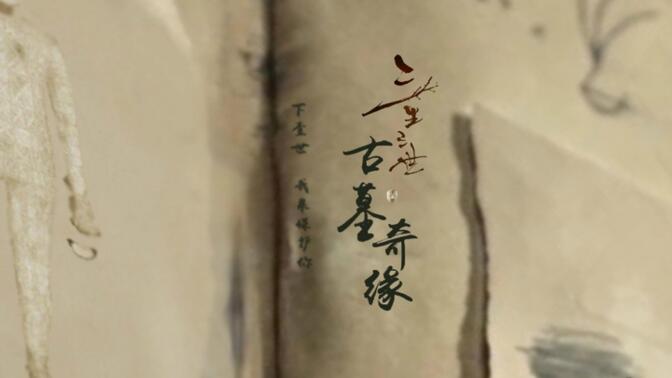 三生三世
古墓
奇缘
下壹世 我来保护你